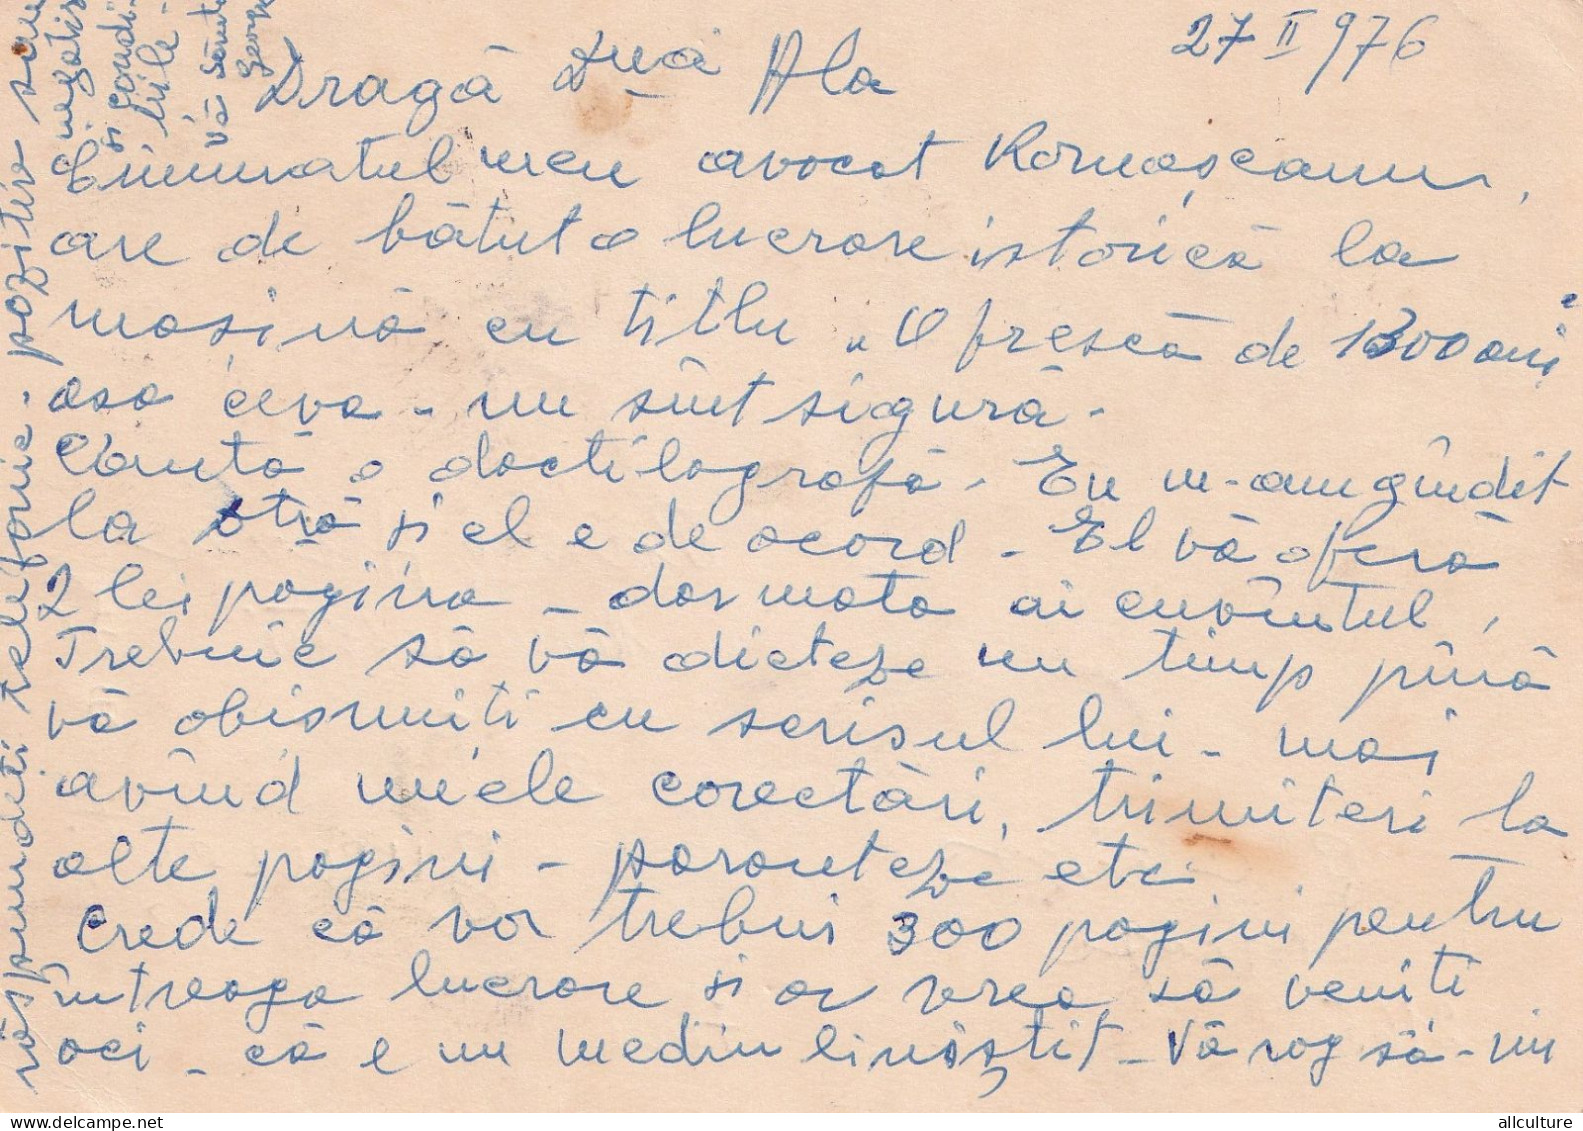 27 II 976
Dragă Dnă Ala
Eminentul meu avocat Romașcanu,
are de bătut o lucrare istorică la
mașină cu titlu „O frescă de 1300 ani
așa ceva - nu sînt sigură -
Caută o dactilografă - Eu m-am gîndit
la dtră și el e de acord - El vă oferă
2 lei pagina - dar mata ai cuvîntul,
Trebuie să vă dicteze un timp până
vă obișnuiți cu scrisul lui - mai
avînd unele corectări, trimiteri la
alte pagini - paranteze etc
Crede că vor trebui 300 pagini pentru
întreaga lucrare și ar vrea să veniți
aci - că e un mediu liniștit - Vă rog să-mi
răspundeți telefonic - pozitiv sau
negativ
și condi-
țiile -
Vă sărută